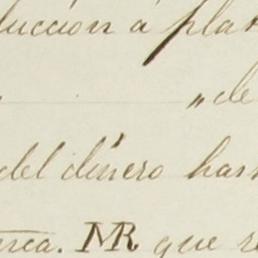 ducción á pla
" " de
del dinero has
rca. MR que re